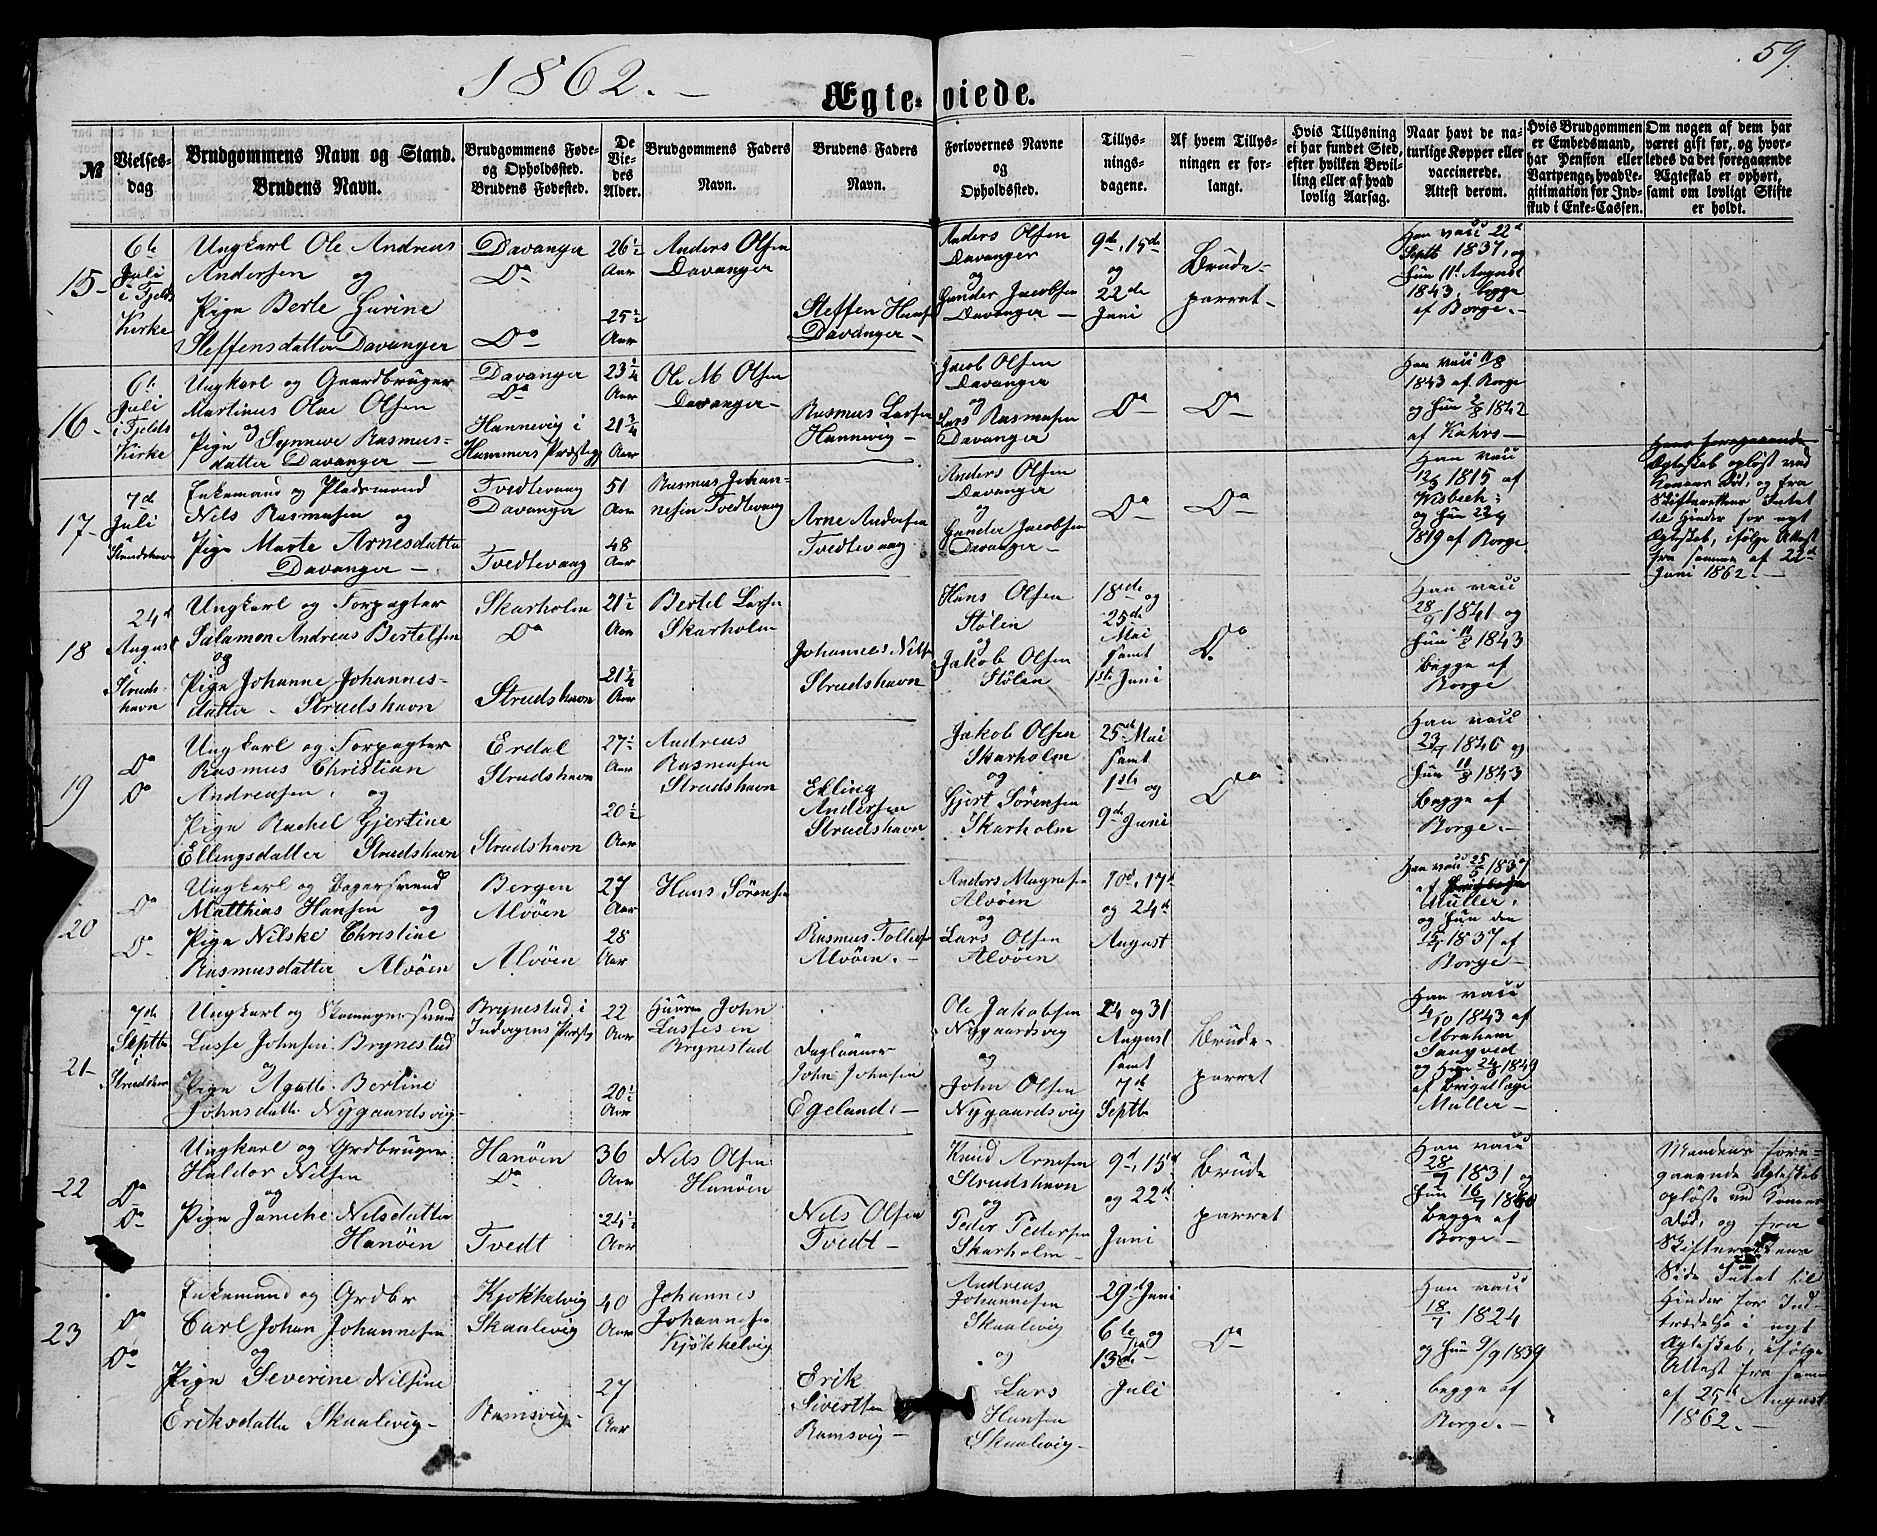 1862. -
59.
Ægte-viede.
№
Vielses-
dag
Brudgommens Navn og Stand.
Brudens Navn.
Brudgommens Føde-
og Opholdssted.
Brudens Fødested.
De
Vie-
des
Alder.
Brudgommens Faders
Navn.
Brudens Faders
Navn.
Forlovernes Navne
og
Opholdssted.
Tillys-
nings-
dagene.
Af hvem Tillys-
ningen er for-
langt.
Hvis Tillysning
ei har fundet Sted,
efter hvilken Bevil-
ling eller af hvad
lovlig Aarsag.
Naar havt de na-
turlige Kopper eller
vaccinerede.
Attest derom.
Hvis Brudgommen
er Embedsmand,
har Pension eller
Vartpenge, hvad Le-
gitimation for Ind-
skud i Enke-Cassen.
Om nogen af dem har
været gift før, og hvor-
ledes da det foregaaende
Ægteskab er ophørt,
samt om lovligt Skifte
er holdt.
15-
6te
Juli
i Fjelds
Kirke
Ungkarl Ole Andreas
Andersen og
Pige Berte Gurine
Steffensdatter Davanger
Davanger
Do
Do
26½
Aar
25½
Aar
Anders Olsen
Davanger
Steffen Hans
Davanger -
Anders Olsen
Davanger
og
Gunder Jacobsen
Davanger -
9de, 15de
og
22de
Juni
Brude-
parret-
Han vacc 22d
Septb 1837, og
hun 11t August
1843, begge
af Borge. -
16-
6te
Juli
i Fjelds
Kirke
Ungkarl og Gaardbruger
Martinus Olai Olsen
og
Pige Synneve Rasmus-
datter Davanger -
Davanger
Do
Hannevig i
Hammers Præstegj
23¼
Aar
21¾
Aar
Ole M Olsen
Davanger-
Rasmus Larsen
Hannevig -
Jacob Olsen
Davanger
og
Lars Rasmusen
Davanger
Do
Do
Han vacc 11/8
1843 af Borge
og hun 2/8 1842
af Kahrs -
17-
7de
Juli
i
Strudshavn
Enkemand og Pladsmand
Nils Rasmusen og
Pige Marte Arnesdatter
Davanger -
Tvedtevaag
Davanger
Tvedtevaag
51
Aar
48
Aar
Rasmus Johan-
nesen Tvedtevaag
Arne Andersen
Tvedtevaag
Anders Olsen
Davanger
og
Gunder Jacobsen
Davanger -
Do
Do
Han vacc
12/5 1815 af
Wisbech;
og hun 23/4
1819 af Borge
Hans foregaaende
Ægteskab opløst ved
Konens Død, og fra
Skifterettens Intet
til Hinder for nyt
Ægteskab, ifølge Attest
fra samme af 22d
Juni 1862. -
18
24d
August
i
Struds-
havn
Ungkarl og Forpagter
Salamon Andreas Bertelsen
og
Pige Johanne Johannes-
datter - Strudshavn
Skarholm
Do
Strudshavn
21½
Aar
21¾
Aar
Bertel Larsen
Skarholm
Johannes Nilsen
Strudshavn
Hans Olsen
Stølen
og
Jakob Olsen
Stølen
18de og
25de
Mai
samt
1ste Juni
Do
Han vacc
28/9 1841 og
hun 11/8 1843
begge af
Borge
19
Do
Do
Ungkarl og Forpagter
Rasmus Christian
Andreasen, og
Pige Rachel Gjertine
Ellingsdatter Strudshavn
Erdal
Strudshavn
Strudshavn
27½
Aar
20½
Aar
Andreas
Rasmusen
Strudshavn
Elling
Andersen
Strudshavn
Jakob Olsen
Skarholm
og
Gjert Sørensen
Skarholm
25de Mai
samt
1ste og
9de Juni
Do
Han vacc
23/7 1840 og
hun 11/8 1843
begge af
Borge. -
20
Do
Do
Ungkarl og Bagersvend
Matthias Hansen og
Pige Nilske Christine
Rasmusdatter Alvøen
Bergen
Alvøen
Alvøen
27
Aar
28
Aar
Hans Sørensen
Rasmus Tollefs
Alvøen. -
Anders Magnesen
Alvøen
og
Lars Olsen
Alvøen
10d, 17d
og 24d
August
Han vacc 25/5 1837
af
Müller,
og hun den
15/7 1837 af
Borge -
21-
7de
Septbr
i
Strudshavn
Ungkarl og Skomagersvend
Lasse Johnsen Brynestad
og
Pige Agatte Bertine
Johnsdatter Nygaardsvig-
Brynestad i
Indvigens Præstegj
22
Aar
20½
Aar
Huusm John
Lassesen
Brynestad
Daglønner
John Johnsen
Egeland. -
Ole Jakobsen
Nygaardsvig
og
John Olsen
Nygaardsvig
24 og 31
August
samt
7de
Septbr
Brude-
parret
Han vacc
4/10 1843 af
Abraham
Sangved
og hun 24/8 1849
af Brigadlæge
Müller -
22
Do
Do
Ungkarl og Grdbruger
Haldor Nilsen
og
Pige Janiche Nilsdatter
Hanøen
Hanøen
Do
Tvedt
36
Aar
24½
Aar
Nils Olsen
Hanøen
Nils Olsen
Tvedt -
Knud Arnesen
Strudshavn
og
Peder Pedersen
Skarholm -
9d, 15d
og 22d
Juni
Brude
parret
Han vacc
28/7 1831 og
hun 16/7 1860
begge af
Borge -
Mandens fore-
gaaende Ægteskab
opløst ved Konens
Død, og fra
Skifterettens
Side Intet til
Hinder for Ind-
trædelse i nyt
Ægteskab, ifølge
Attest fra samme
af 25d August
1862. -
23
Do
Do
Enkemand og Grdbr
Carl Johan Johannesen
og
Pige Severine Nilsine
Eriksdatter Skaalevig-
Kjøkkelvig
Skaalevig
Ramsvig-
40
Aar
27
Aar
Johannes
Johannesen
Kjøkkelvig
Erik
Sivertsen
Ramsvig -
Andreas
Johannesen
Skaalevig
og
Lars
Hansen
Skaalevig-
29d Juni
6te og
13de
Juli
Do
Han vacc
18/7 1824
og hun 9/9 1839
begge af
Borge. -